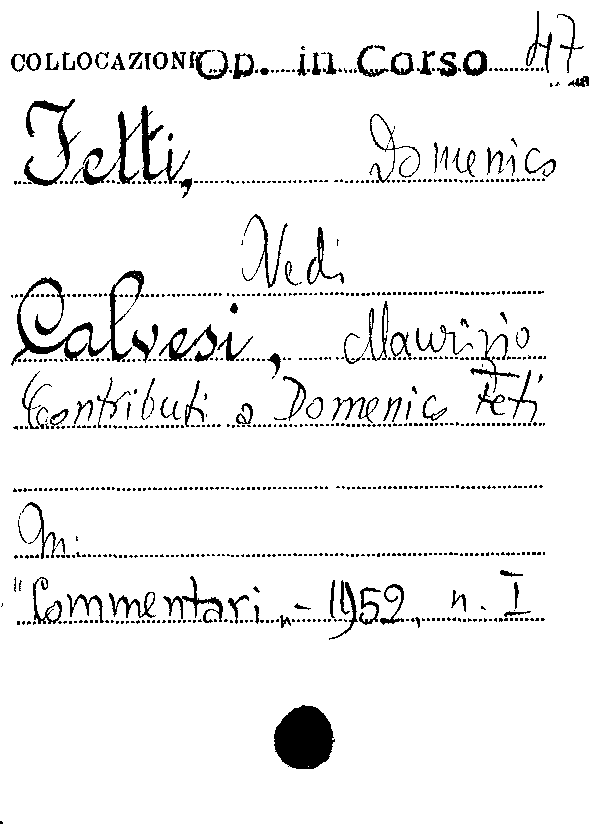 COLLOCAZIONE Op. in Corso 47
Fetti, Domenico
Vedi
Calvesi, Maurizio
Contributi a Domenico Feti
In:
"Commentari„ - 1952, n. I